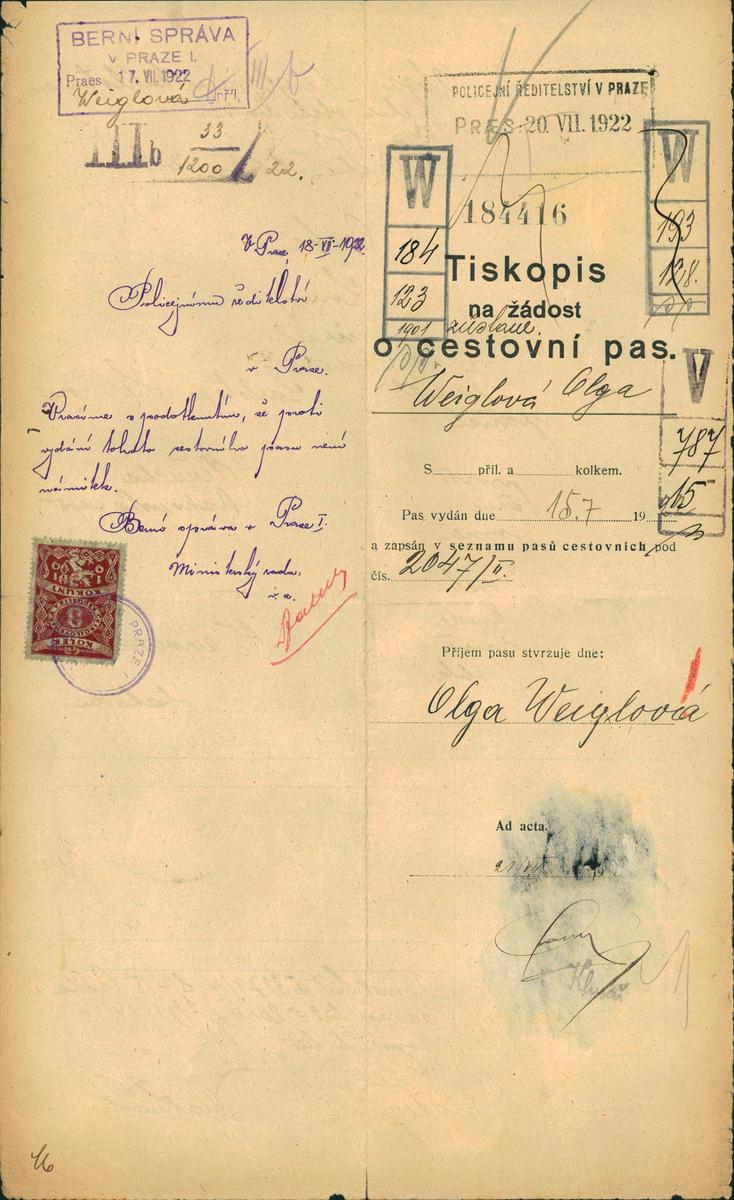 BERNÍ SPRÁVA
V PRAZE I.
Praes 17. VII. 1922
Weiglová příl.
III b 33
1200 / 22.
V Praze, 18-VII-1922
Policejnímu ředitelství
v Praze.
Vracíme s podotknutím, že proti
vydání tohoto cestovního pasu není
námitek.
Berní správa v Praze I.
Ministerský rada:
v. z.
KORUNY
KOLEK
PRAZE I
16
POLICEJNÍ ŘEDITELSTVÍ V PRAZE
PRÆS. 20. VII. 1922
184416
W
184
123
1901
W
193
128.
Tiskopis
na žádost
zůstane.
o cestovní pas.
Weiglová Olga
V
787
15
S příl. a kolkem.
Pas vydán dne 15.7 19
a zapsán v seznamu pasů cestovních pod
čís. 2047/II.
Příjem pasu stvrzuje dne:
Olga Weiglová
Ad acta.
19